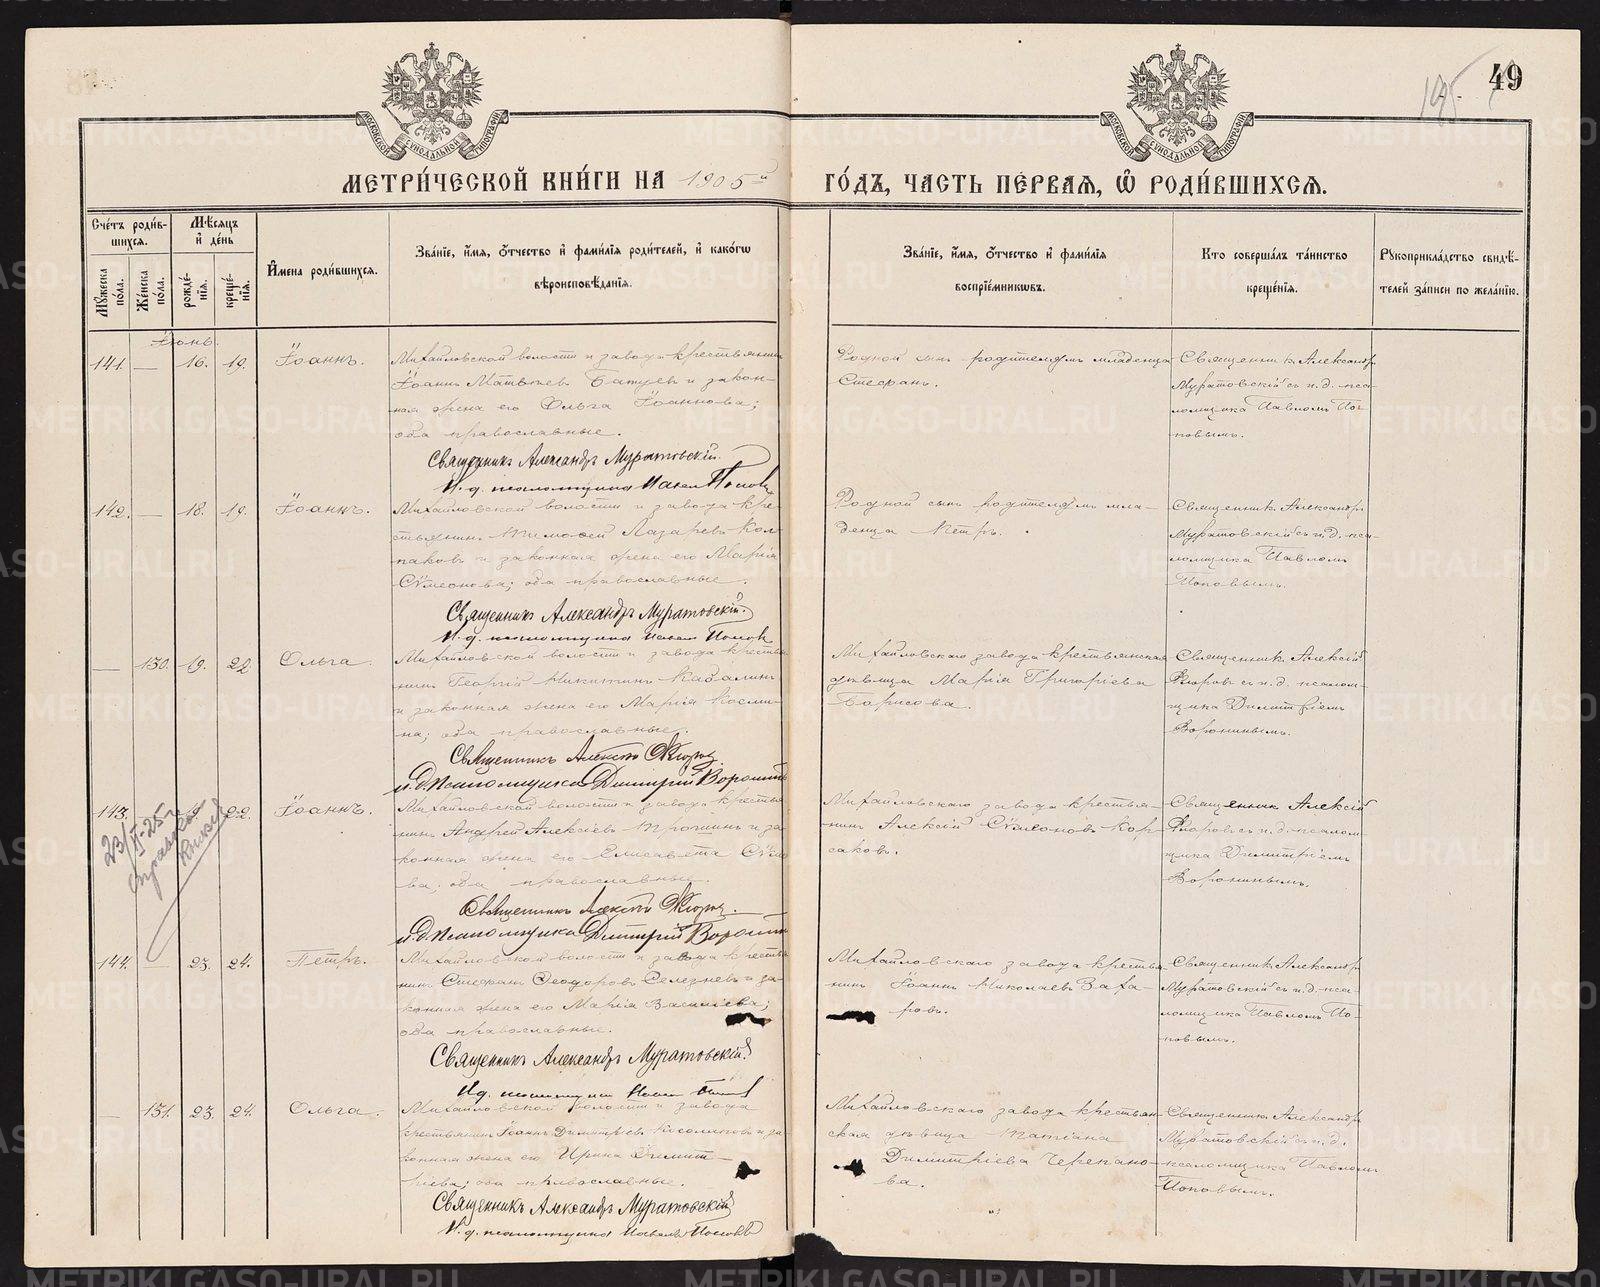 49
195
МОСКОВСКОЙ СѴНОДАЛЬНОЙ ТИПОГРАФІИ
МОСКОВСКОЙ СѴНОДАЛЬНОЙ ТИПОГРАФІИ
МЕТРИ́ЧЕСКОЙ КНИ́ГИ НА 1905й ГО́ДЪ, ЧАСТЬ ПЕ́РВАЯ, Ѽ РОДИ́ВШИХСЯ.
Сче́тъ роди́в-
шихся.
Му́жеска по́ла.
Же́нска по́ла.
Мѣ́сяцъ
и҆ де́нь
рожде́-
нія.
креще́-
нія.
И҆́мена роди́вшихся.
Зва́ніе, и҆́мя, ѻ҆́тчество и҆ фами́лія роди́телей, и҆ како́гѡ
вѣроисповѣ́данія.
Зва́ніе, и҆́мя, ѻ҆́тчество и҆ фами́лія
воспріе́мникѡвъ.
Кто соверша́лъ та́инство
креще́нія.
Рукоприкла́дство свидѣ́-
телей за́писи по жела́нію.
Іюнь.
141. — 16. 19. Іоаннъ.
Михайловской волости и завода крестьянинъ
Іоаннъ Матвѣевъ Батуевъ и закон-
ная жена его Ольга Іоаннова;
оба православные.
Священникъ Александръ Муратовскій.
И. д. псаломщика Павелъ Поповъ
Родной сынъ родителямъ младенца
Стефанъ.
Священникъ Александръ
Муратовскій съ и.д. пса-
ломщика Павломъ По-
повымъ.
142. — 18. 19. Іоаннъ.
Михайловской волости и завода кре-
стьянинъ Тимоѳей Лазаревъ Кол-
паковъ и законная жена его Марія
Сѵмеонова; оба православные.
Священникъ Александръ Муратовскій.
И. д. псаломщика Павелъ Поповъ
Родной сынъ родителямъ мла-
денца Петръ.
Священникъ Александръ
Муратовскій съ и.д. пса-
ломщика Павломъ
Поповымъ.
— 130. 19. 22. Ольга.
Михайловской волости и завода крестья-
нинъ Георгій Никитинъ Кадалинъ
и законная жена его Марія Косми-
на; оба православные.
Священникъ Алексій Флоровъ
и.д. псаломщика Димитрій Воронинъ
Михайловскаго завода крестьянская
дѣвица Марія Григоріева
Борисова.
Священникъ Алексій
Флоровъ съ и.д. псалом-
щика Димитріемъ
Воронинымъ.
143. 19 22. Іоаннъ.
23/II-25 г.
справка
Михайловской волости и завода крестья-
нинъ Андрей Алексіевъ Трошинъ и за-
конная жена его Елисавета
ва; оба православные.
Священникъ Алексій Флоровъ
и.д. псаломщика Димитрій Воронинъ
Михайловскаго завода крестья-
нинъ Алексій Сѵмеоновъ Кор-
саковъ.
Священникъ Алексій
Флоровъ съ и.д. псалом-
щика Димитріемъ
Воронинымъ.
144. — 23. 24. Петръ.
Михайловской волости и завода крестья-
нинъ Стефанъ Ѳеодоровъ Селезневъ и за-
конная жена его Марія Василіева;
оба православные.
Священникъ Александръ Муратовскій.
И.д. псаломщика Павелъ Поповъ
Михайловскаго завода крестья-
нинъ Іоаннъ Николаевъ Заха-
ровъ.
Священникъ Александръ
Муратовскій съ и.д. пса-
ломщика Павломъ По-
повымъ.
— 131. 23. 24. Ольга.
Михайловской волости и завода
крестьянинъ Іоаннъ Димитріевъ и за-
конная жена его Ирина Димит-
ріева; оба православные.
Священникъ Александръ Муратовскій
И. д. псаломщика Павелъ Поповъ
Михайловскаго завода крестьян-
ская дѣвица Татіана
Димитріева Черепано-
ва.
Священникъ Александръ
Муратовскій съ и.д.
псаломщика Павломъ
Поповымъ.